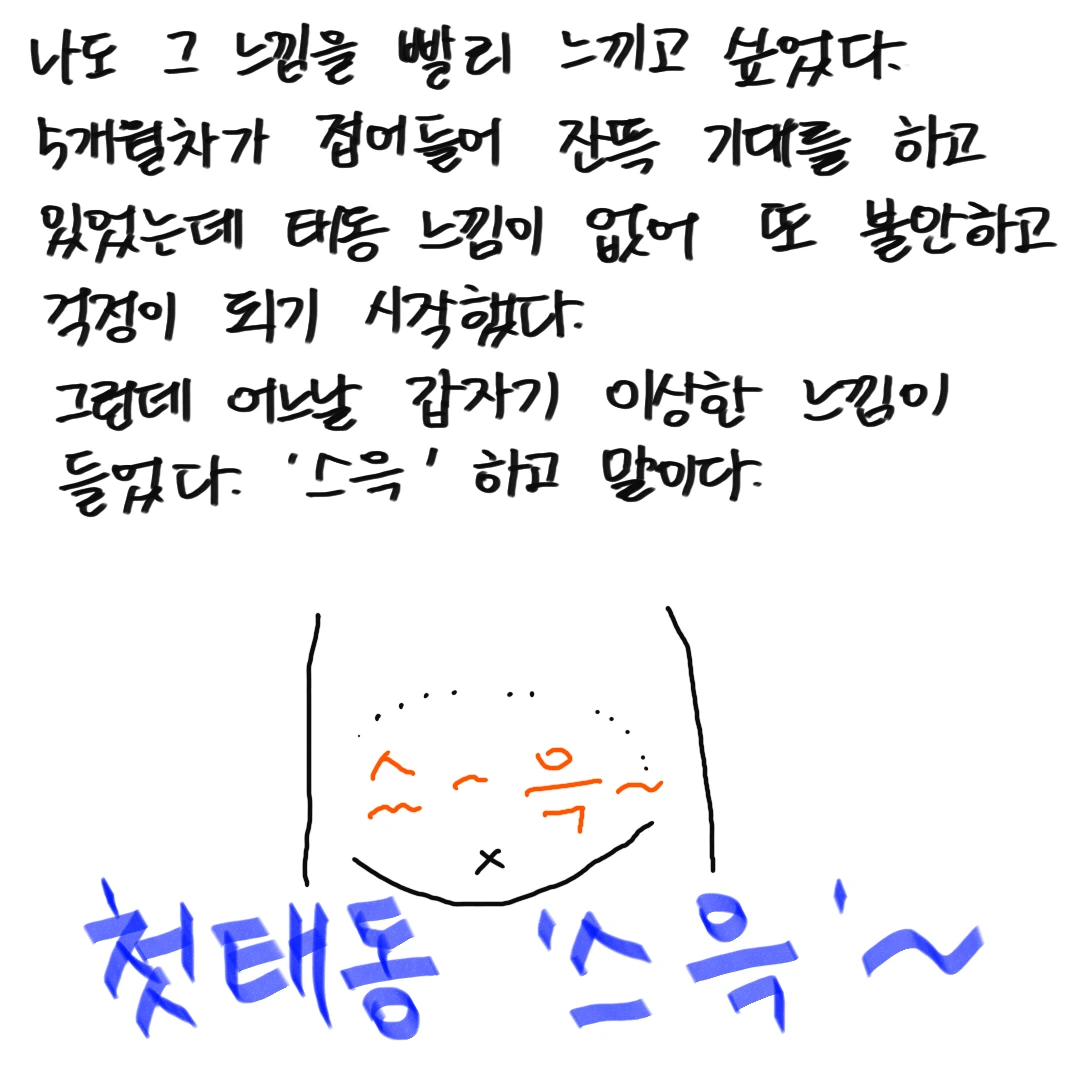 나도 그 느낌을 빨리 느끼고 싶었다.
5개월차가 접어들어 잔뜩 기대를 하고
있었는데 태동 느낌이 없어 또 불안하고
걱정이 되기 시작했다.
그런데 어느날 갑자기 이상한 느낌이
들었다. '스윽' 하고 말이다.
스~윽~
첫태동 '스윽'~